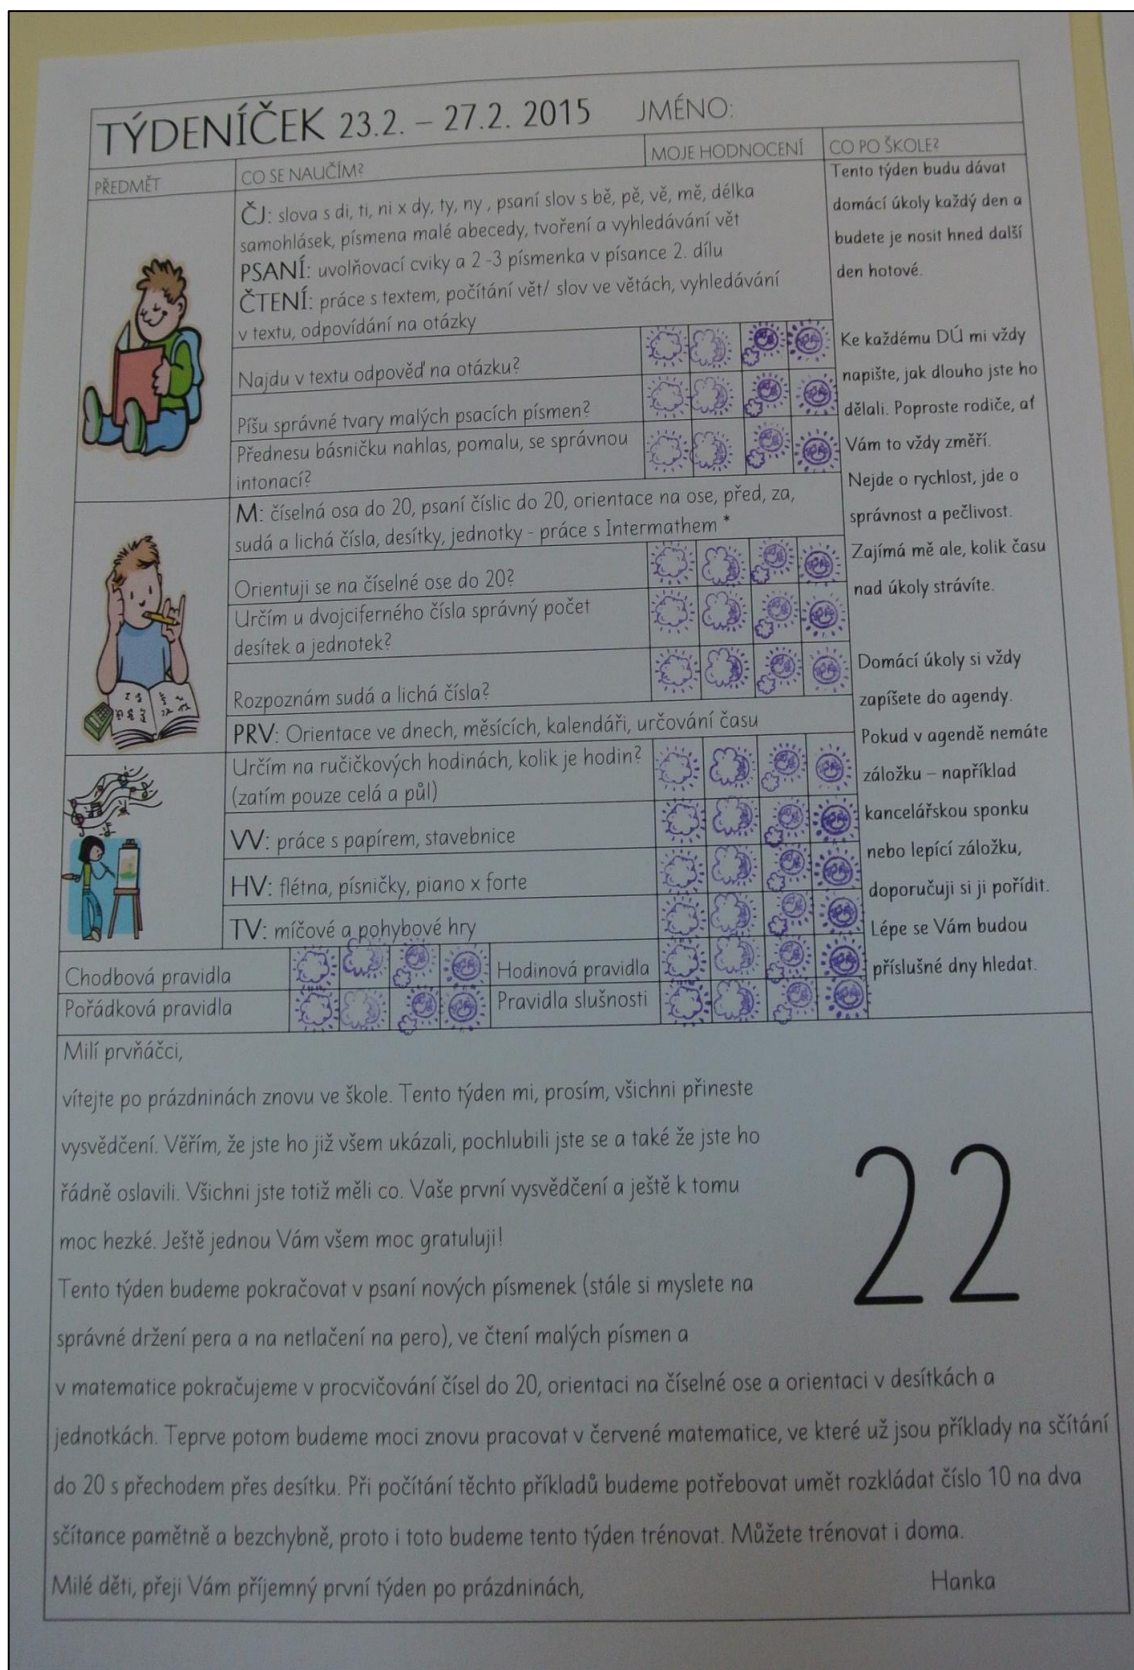 TÝDENÍČEK 23.2. – 27.2. 2015 JMÉNO:
PŘEDMĚT
CO SE NAUČÍM?
MOJE HODNOCENÍ
CO PO ŠKOLE?
ČJ: slova s di, ti, ni x dy, ty, ny , psaní slov s bě, pě, vě, mě, délka
samohlásek, písmena malé abecedy, tvoření a vyhledávání vět
PSANÍ: uvolňovací cviky a 2 -3 písmenka v písance 2. dílu
ČTENÍ: práce s textem, počítání vět/ slov ve větách, vyhledávání
v textu, odpovídání na otázky
Najdu v textu odpověď na otázku?
Píšu správné tvary malých psacích písmen?
Přednesu básničku nahlas, pomalu, se správnou
intonací?
M: číselná osa do 20, psaní číslic do 20, orientace na ose, před, za,
sudá a lichá čísla, desítky, jednotky - práce s Intermathem *
Orientuji se na číselné ose do 20?
Určím u dvojciferného čísla správný počet
desítek a jednotek?
Rozpoznám sudá a lichá čísla?
PRV: Orientace ve dnech, měsících, kalendáři, určování času
Určím na ručičkových hodinách, kolik je hodin?
(zatím pouze celá a půl)
VV: práce s papírem, stavebnice
HV: flétna, písničky, piano x forte
TV: míčové a pohybové hry
Chodbová pravidla
Hodinová pravidla
Pořádková pravidla
Pravidla slušnosti
Tento týden budu dávat
domácí úkoly každý den a
budete je nosit hned další
den hotové.
Ke každému DÚ mi vždy
napište, jak dlouho jste ho
dělali. Poproste rodiče, ať
Vám to vždy změří.
Nejde o rychlost, jde o
správnost a pečlivost.
Zajímá mě ale, kolik času
nad úkoly strávíte.
Domácí úkoly si vždy
zapíšete do agendy.
Pokud v agendě nemáte
záložku – například
kancelářskou sponku
nebo lepící záložku,
doporučuji si ji pořídit.
Lépe se Vám budou
příslušné dny hledat.
Milí prvňáčci,
vítejte po prázdninách znovu ve škole. Tento týden mi, prosím, všichni přineste
vysvědčení. Věřím, že jste ho již všem ukázali, pochlubili jste se a také že jste ho
řádně oslavili. Všichni jste totiž měli co. Vaše první vysvědčení a ještě k tomu
moc hezké. Ještě jednou Vám všem moc gratuluji!
22
Tento týden budeme pokračovat v psaní nových písmenek (stále si myslete na
správné držení pera a na netlačení na pero), ve čtení malých písmen a
v matematice pokračujeme v procvičování čísel do 20, orientaci na číselné ose a orientaci v desítkách a
jednotkách. Teprve potom budeme moci znovu pracovat v červené matematice, ve které už jsou příklady na sčítání
do 20 s přechodem přes desítku. Při počítání těchto příkladů budeme potřebovat umět rozkládat číslo 10 na dva
sčítance pamětně a bezchybně, proto i toto budeme tento týden trénovat. Můžete trénovat i doma.
Milé děti, přeji Vám příjemný první týden po prázdninách,
Hanka